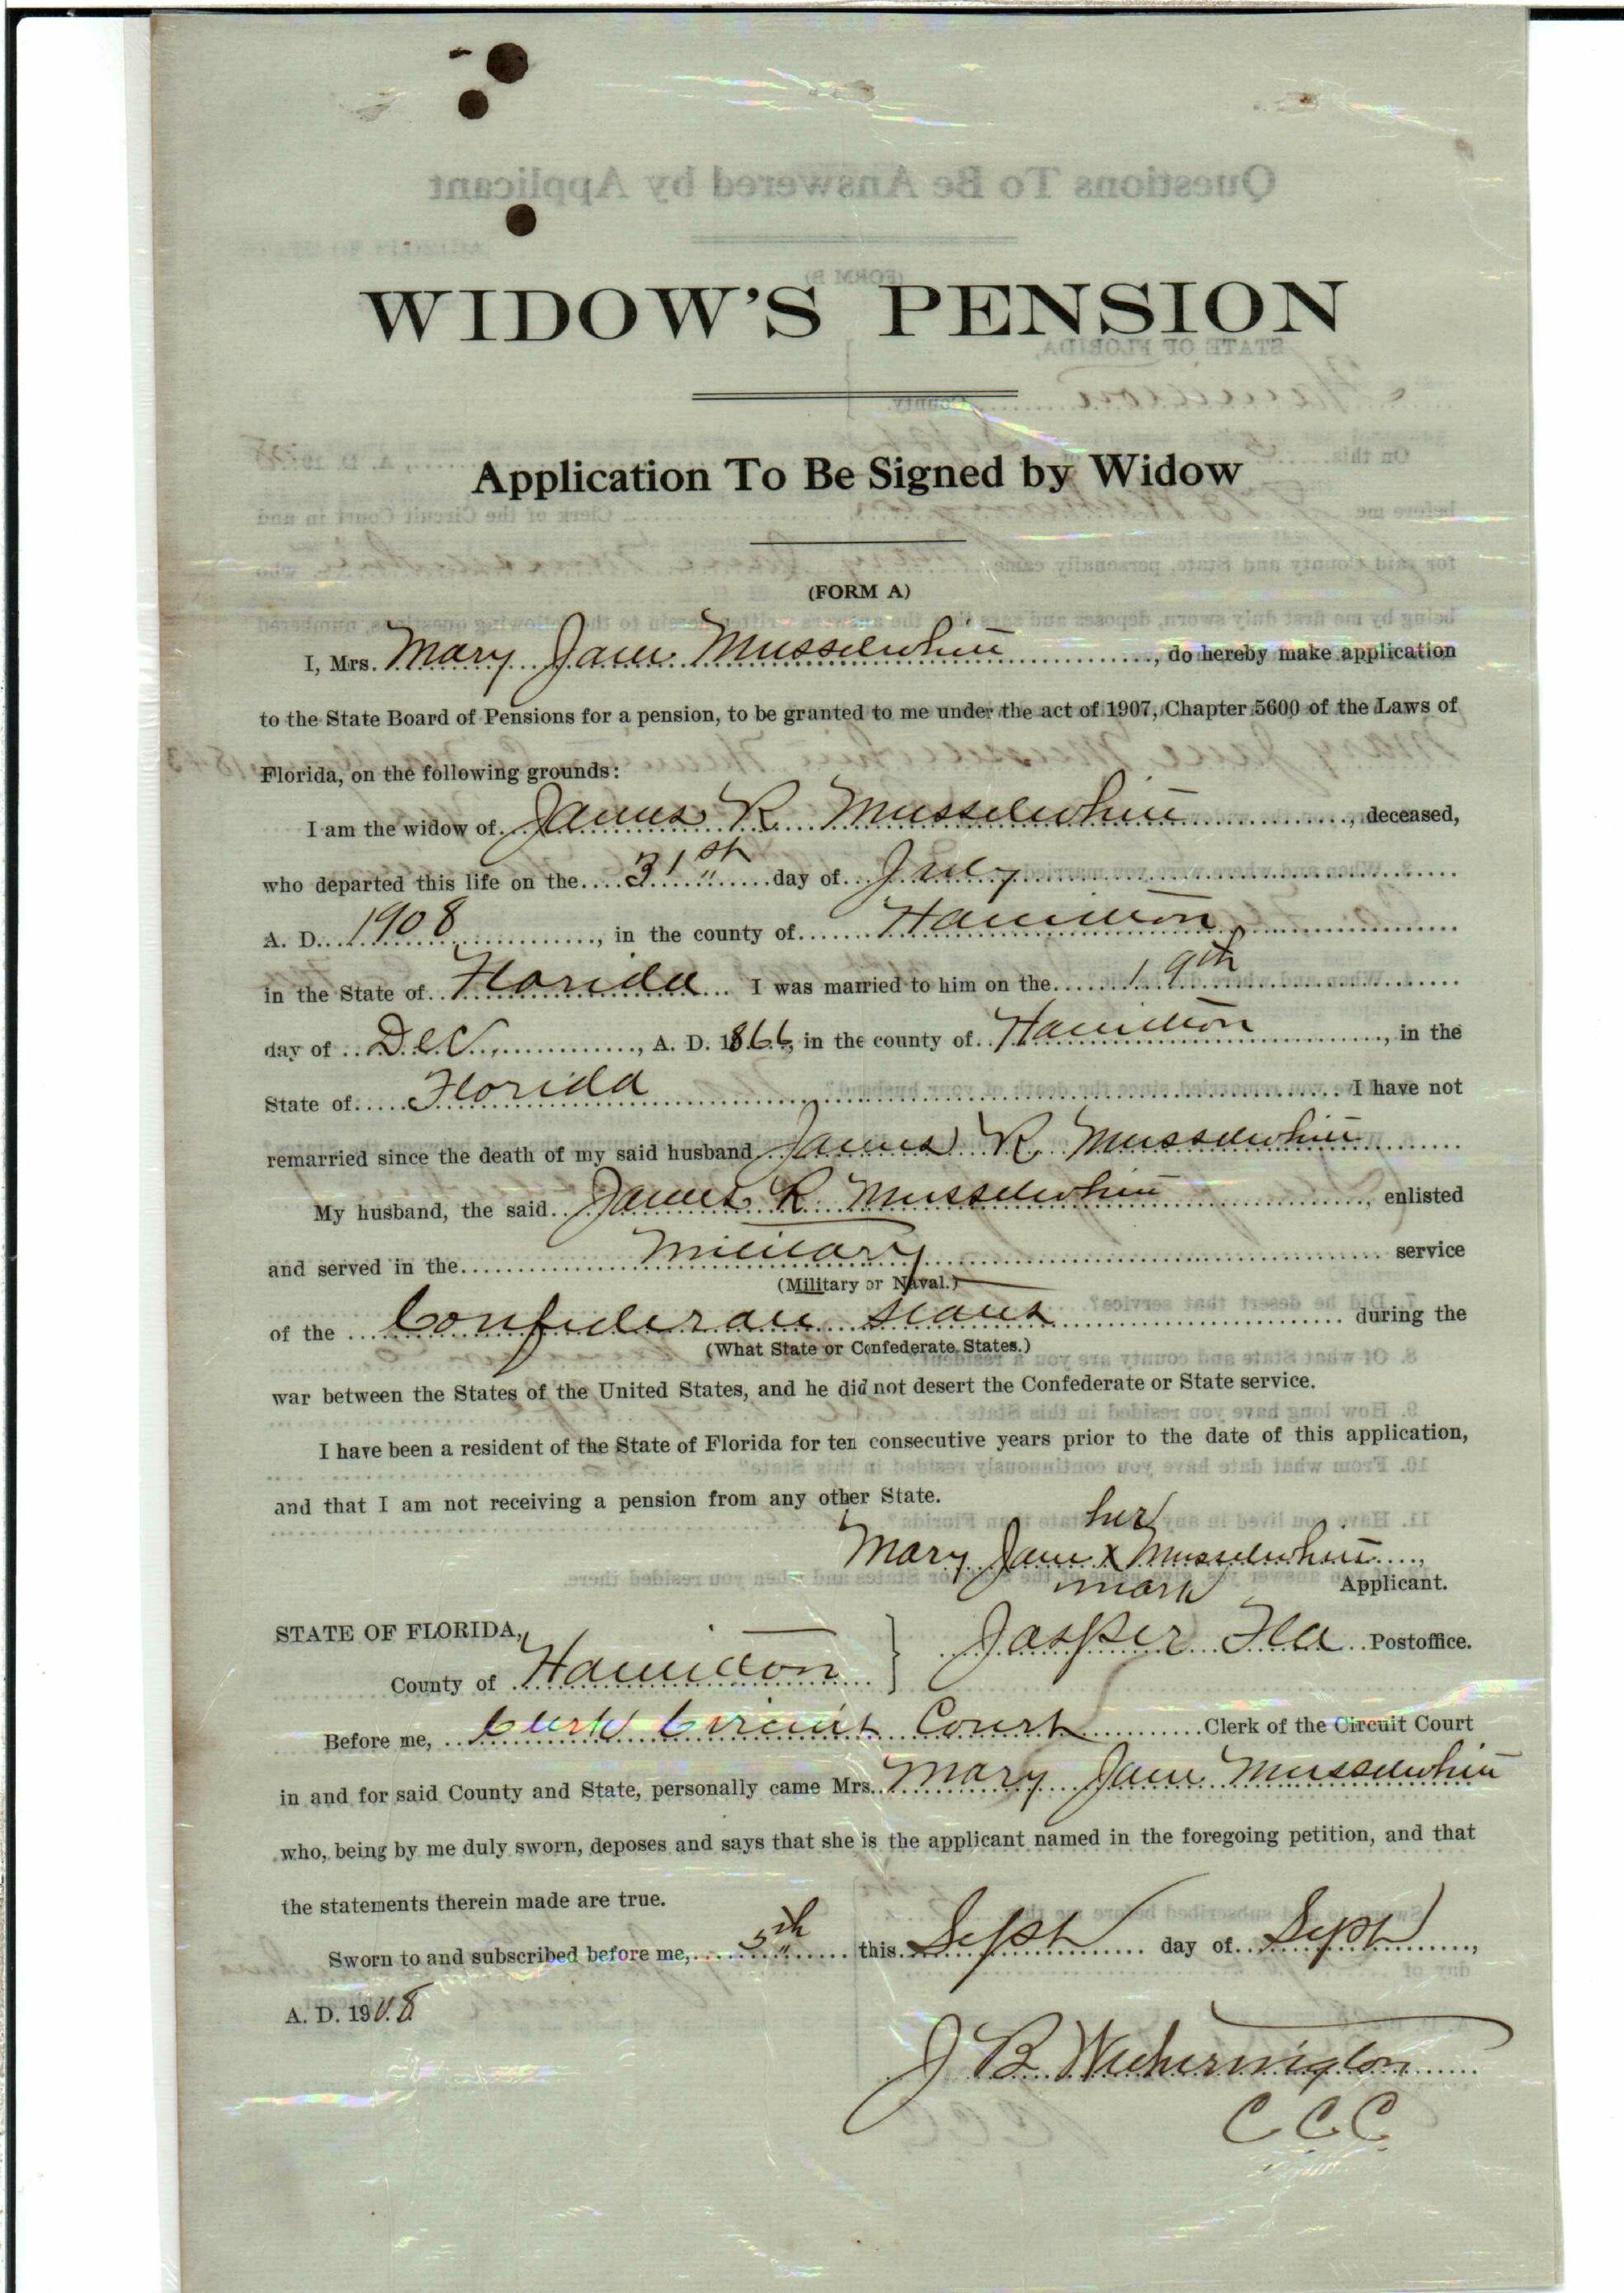 WIDOW'S PENSION
Application To Be Signed by Widow
(FORM A)
I, Mrs. Mary Jane Musselwhite, do hereby make application
to the State Board of Pensions for a pension, to be granted to me under the act of 1907, Chapter 5600 of the Laws of
Florida, on the following grounds:
I am the widow of James R Musselwhite, deceased,
who departed this life on the 31st day of July
A. D. 1908, in the county of Hamilton
in the State of Florida I was married to him on the 19th
day of Dec, A. D. 1866, in the county of Hamilton, in the
State of Florida I have not
remarried since the death of my said husband James R Musselwhite
My husband, the said James R Musselwhite, enlisted
and served in the Military service
(Military or Naval.)
of the Confederate States during the
(What State or Confederate States.)
war between the States of the United States, and he did not desert the Confederate or State service.
I have been a resident of the State of Florida for ten consecutive years prior to the date of this application,
and that I am not receiving a pension from any other State.
her
Mary Jane x Musselwhite,
mark Applicant.
STATE OF FLORIDA, Jasper Fla Postoffice.
County of Hamilton
Before me, Clerk Circuit Court Clerk of the Circuit Court
in and for said County and State, personally came Mrs. Mary Jane Musselwhite
who, being by me duly sworn, deposes and says that she is the applicant named in the foregoing petition, and that
the statements therein made are true.
Sworn to and subscribed before me, 5th this Sept day of Sept,
A. D. 1908
J B Wetherington
C.C.C.